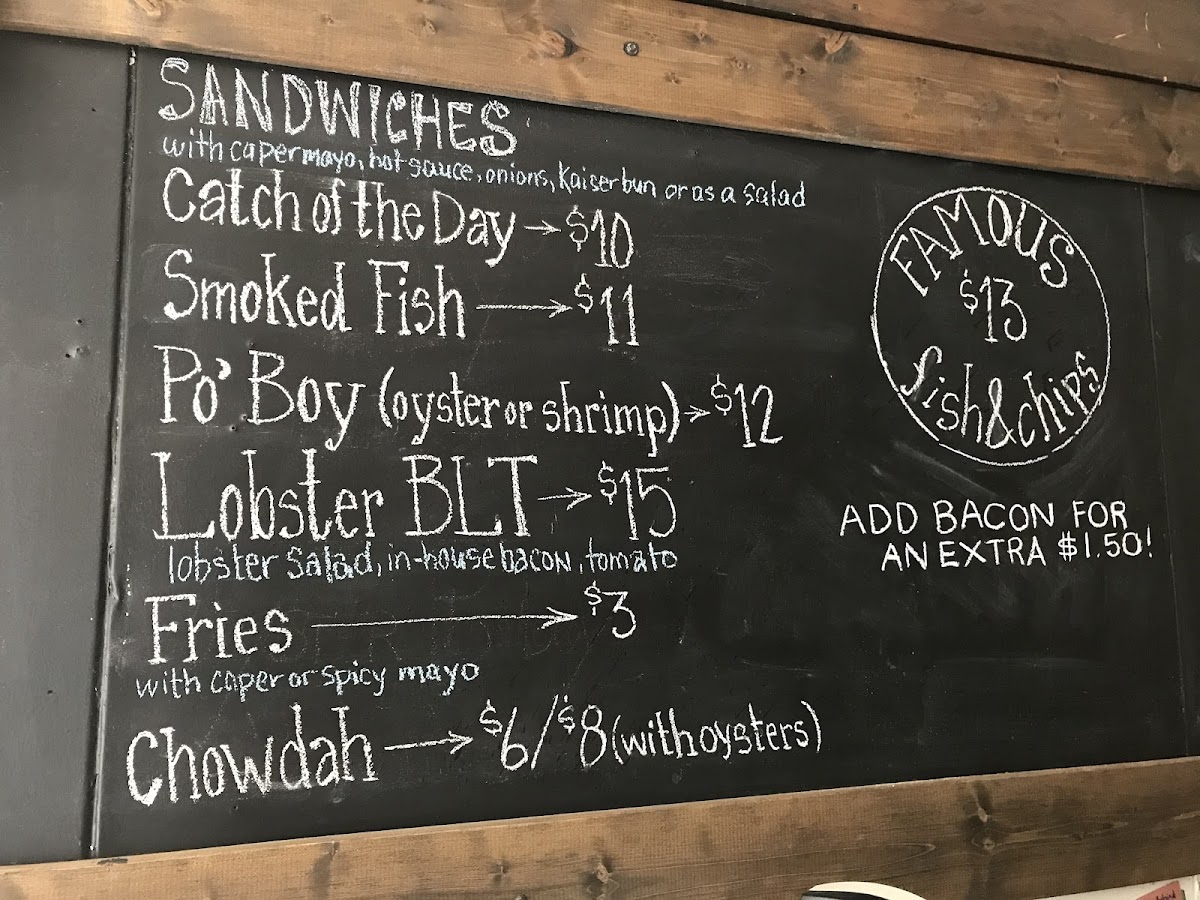 SANDWICHES
with caper mayo, hot sauce, onions, Kaiser bun or as a salad
Catch of the Day → $10
Smoked Fish → $11
Po' Boy (oyster or shrimp) → $12
Lobster BLT → $15
lobster salad, in-house bacon, tomato
Fries → $3
with caper or spicy mayo
Chowdah → $6/$8 (with oysters)
FAMOUS
$13
fish & chips
ADD BACON FOR
AN EXTRA $1.50!